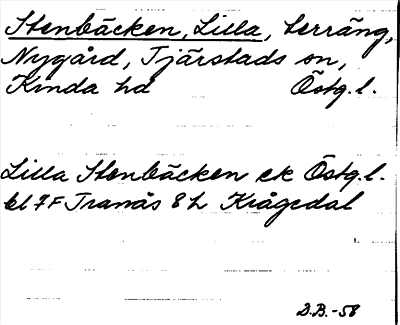 Stenbäcken, Lilla, terräng,
Nygård, Tjärstads sn,
Kinda hd Östg.l.
Lilla Stenbäcken ek Östg.l.
bl 7F Tranås 8h Krågedal
D.B.-58